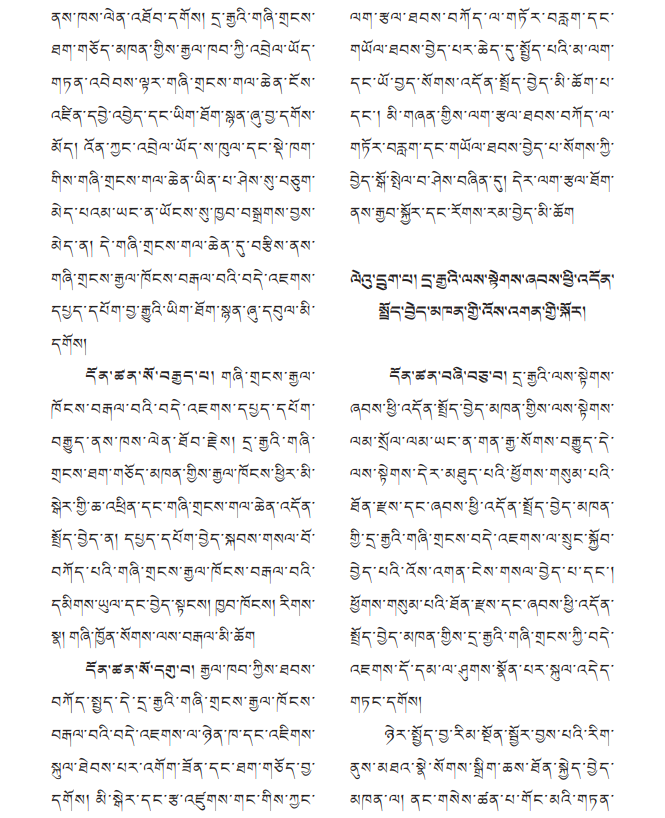 ནས་ཁས་ལེན་འཐོབ་དགོས། དྲ་རྒྱའི་གཞི་གྲངས་
ཐག་གཅོད་མཁན་གྱིས་རྒྱལ་ཁབ་ཀྱི་འབྲེལ་ཡོད་
གཏན་འབེབས་ལྟར་གཞི་གྲངས་གལ་ཆེན་ངོས་
འཛིན་དབྱེ་འབྱེད་དང་ཡིག་ཐོག་སྙན་ཞུ་བྱ་དགོས་
མོད། འོན་ཀྱང་འབྲེལ་ཡོད་ས་ཁུལ་དང་སྡེ་ཁག་
གིས་གཞི་གྲངས་གལ་ཆེན་ཡིན་པ་ཤེས་སུ་བཅུག་
མེད་པའམ་ཡང་ན་ཡོངས་སུ་ཁྱབ་བསྒྲགས་བྱས་
མེད་ན། དེ་གཞི་གྲངས་གལ་ཆེན་དུ་བརྩིས་ནས་
གཞི་གྲངས་རྒྱལ་ཁོངས་བརྒལ་བའི་བདེ་འཇགས་
དཔྱད་དཔོག་བྱ་རྒྱུའི་ཡིག་ཐོག་སྙན་ཞུ་དབུལ་མི་
དགོས།
དོན་ཚན་སོ་བརྒྱད་པ། གཞི་གྲངས་རྒྱལ་
ཁོངས་བརྒལ་བའི་བདེ་འཇགས་དཔྱད་དཔོག་
བརྒྱུད་ནས་ཁས་ལེན་ཐོབ་རྗེས། དྲ་རྒྱའི་གཞི་
གྲངས་ཐག་གཅོད་མཁན་གྱིས་རྒྱལ་ཁོངས་ཕྱིར་མི་
སྒེར་གྱི་ཆ་འཕྲིན་དང་གཞི་གྲངས་གལ་ཆེན་འདོན་
སྤྲོད་བྱེད་ན། དཔྱད་དཔོག་བྱེད་སྐབས་གསལ་བོ་
བཀོད་པའི་གཞི་གྲངས་རྒྱལ་ཁོངས་བརྒལ་བའི་
དམིགས་ཡུལ་དང་བྱེད་སྟངས། ཁྱབ་ཁོངས། རིགས་
སྣ། གཞི་ཁྱོན་སོགས་ལས་བརྒལ་མི་ཆོག
དོན་ཚན་སོ་དགུ་བ། རྒྱལ་ཁབ་ཀྱིས་ཐབས་
བཀོད་སྤྱད་དེ་དྲ་རྒྱའི་གཞི་གྲངས་རྒྱལ་ཁོངས་
བརྒལ་བའི་བདེ་འཇགས་ལ་ཉེན་ཁ་དང་འཇིགས་
སྐུལ་ཐེབས་པར་འགོག་ཟོན་དང་ཐག་གཅོད་བྱ་
དགོས། མི་སྒེར་དང་རྩ་འཛུགས་གང་གིས་ཀྱང་
ལག་རྩལ་ཐབས་བཀོད་ལ་གཏོར་བརླག་དང་
གཡོལ་ཐབས་བྱེད་པར་ཆེད་དུ་སྤྱོད་པའི་མ་ལག་
དང་ཡོ་བྱད་སོགས་འདོན་སྤྲོད་བྱེད་མི་ཆོག་པ་
དང་། མི་གཞན་གྱིས་ལག་རྩལ་ཐབས་བཀོད་ལ་
གཏོར་བརླག་དང་གཡོལ་ཐབས་བྱེད་པ་སོགས་ཀྱི་
བྱེད་སྒོ་སྤེལ་བ་ཤེས་བཞིན་དུ། དེར་ལག་རྩལ་ཐོག་
ནས་རྒྱབ་སྐྱོར་དང་རོགས་རམ་བྱེད་མི་ཆོག
ལེའུ་དྲུག་པ། དྲ་རྒྱའི་ལས་སྟེགས་ཞབས་ཕྱི་འདོན་
སྤྲོད་བྱེད་མཁན་གྱི་འོས་འགན་གྱི་སྐོར།
དོན་ཚན་བཞི་བཅུ་བ། དྲ་རྒྱའི་ལས་སྟེགས་
ཞབས་ཕྱི་འདོན་སྤྲོད་བྱེད་མཁན་གྱིས་ལས་སྟེགས་
ལམ་སྲོལ་ལམ་ཡང་ན་གན་རྒྱ་སོགས་བརྒྱུད་དེ་
ལས་སྟེགས་དེར་མཐུད་པའི་ཕྱོགས་གསུམ་པའི་
ཐོན་རྫས་དང་ཞབས་ཕྱི་འདོན་སྤྲོད་བྱེད་མཁན་
གྱི་དྲ་རྒྱའི་གཞི་གྲངས་བདེ་འཇགས་ལ་སྲུང་སྐྱོབ་
བྱེད་པའི་འོས་འགན་ངེས་གསལ་བྱེད་པ་དང་།
ཕྱོགས་གསུམ་པའི་ཐོན་རྫས་དང་ཞབས་ཕྱི་འདོན་
སྤྲོད་བྱེད་མཁན་གྱིས་དྲ་རྒྱའི་གཞི་གྲངས་ཀྱི་བདེ་
འཇགས་དོ་དམ་ལ་ཤུགས་སྣོན་པར་སྐུལ་འདེད་
གཏང་དགོས།
ཉེར་སྤྱོད་བྱ་རིམ་སྔོན་སྒྱོར་བྱས་པའི་རིག་
ནུས་མཐའ་སྣེ་སོགས་སྒྲིག་ཆས་ཐོན་སྐྱེད་བྱེད་
མཁན་ལ། ནང་གསེས་ཚན་པ་གོང་མའི་གཏན་